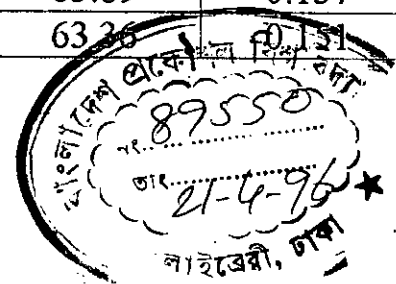 63.36 0.151
বাংলাদেশ প্রকৌশল বিশ্ববিদ্যা
নং 89550
তাং 21-4-96
লাইব্রেরী, ঢাকা